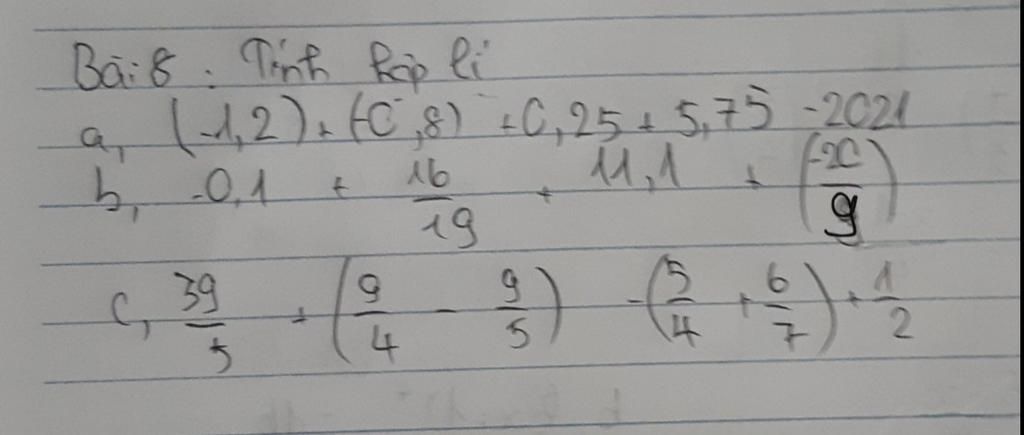 Bài 8 : Tính hợp lí
a, (-1,2) + (-0,8) + 0,25 + 5,75 - 2021
b, -0,1 + 16/19 + 11,1 + (-20/9)
c, 39/5 + (9/4 - 9/5) - (5/4 + 6/7) + 1/2